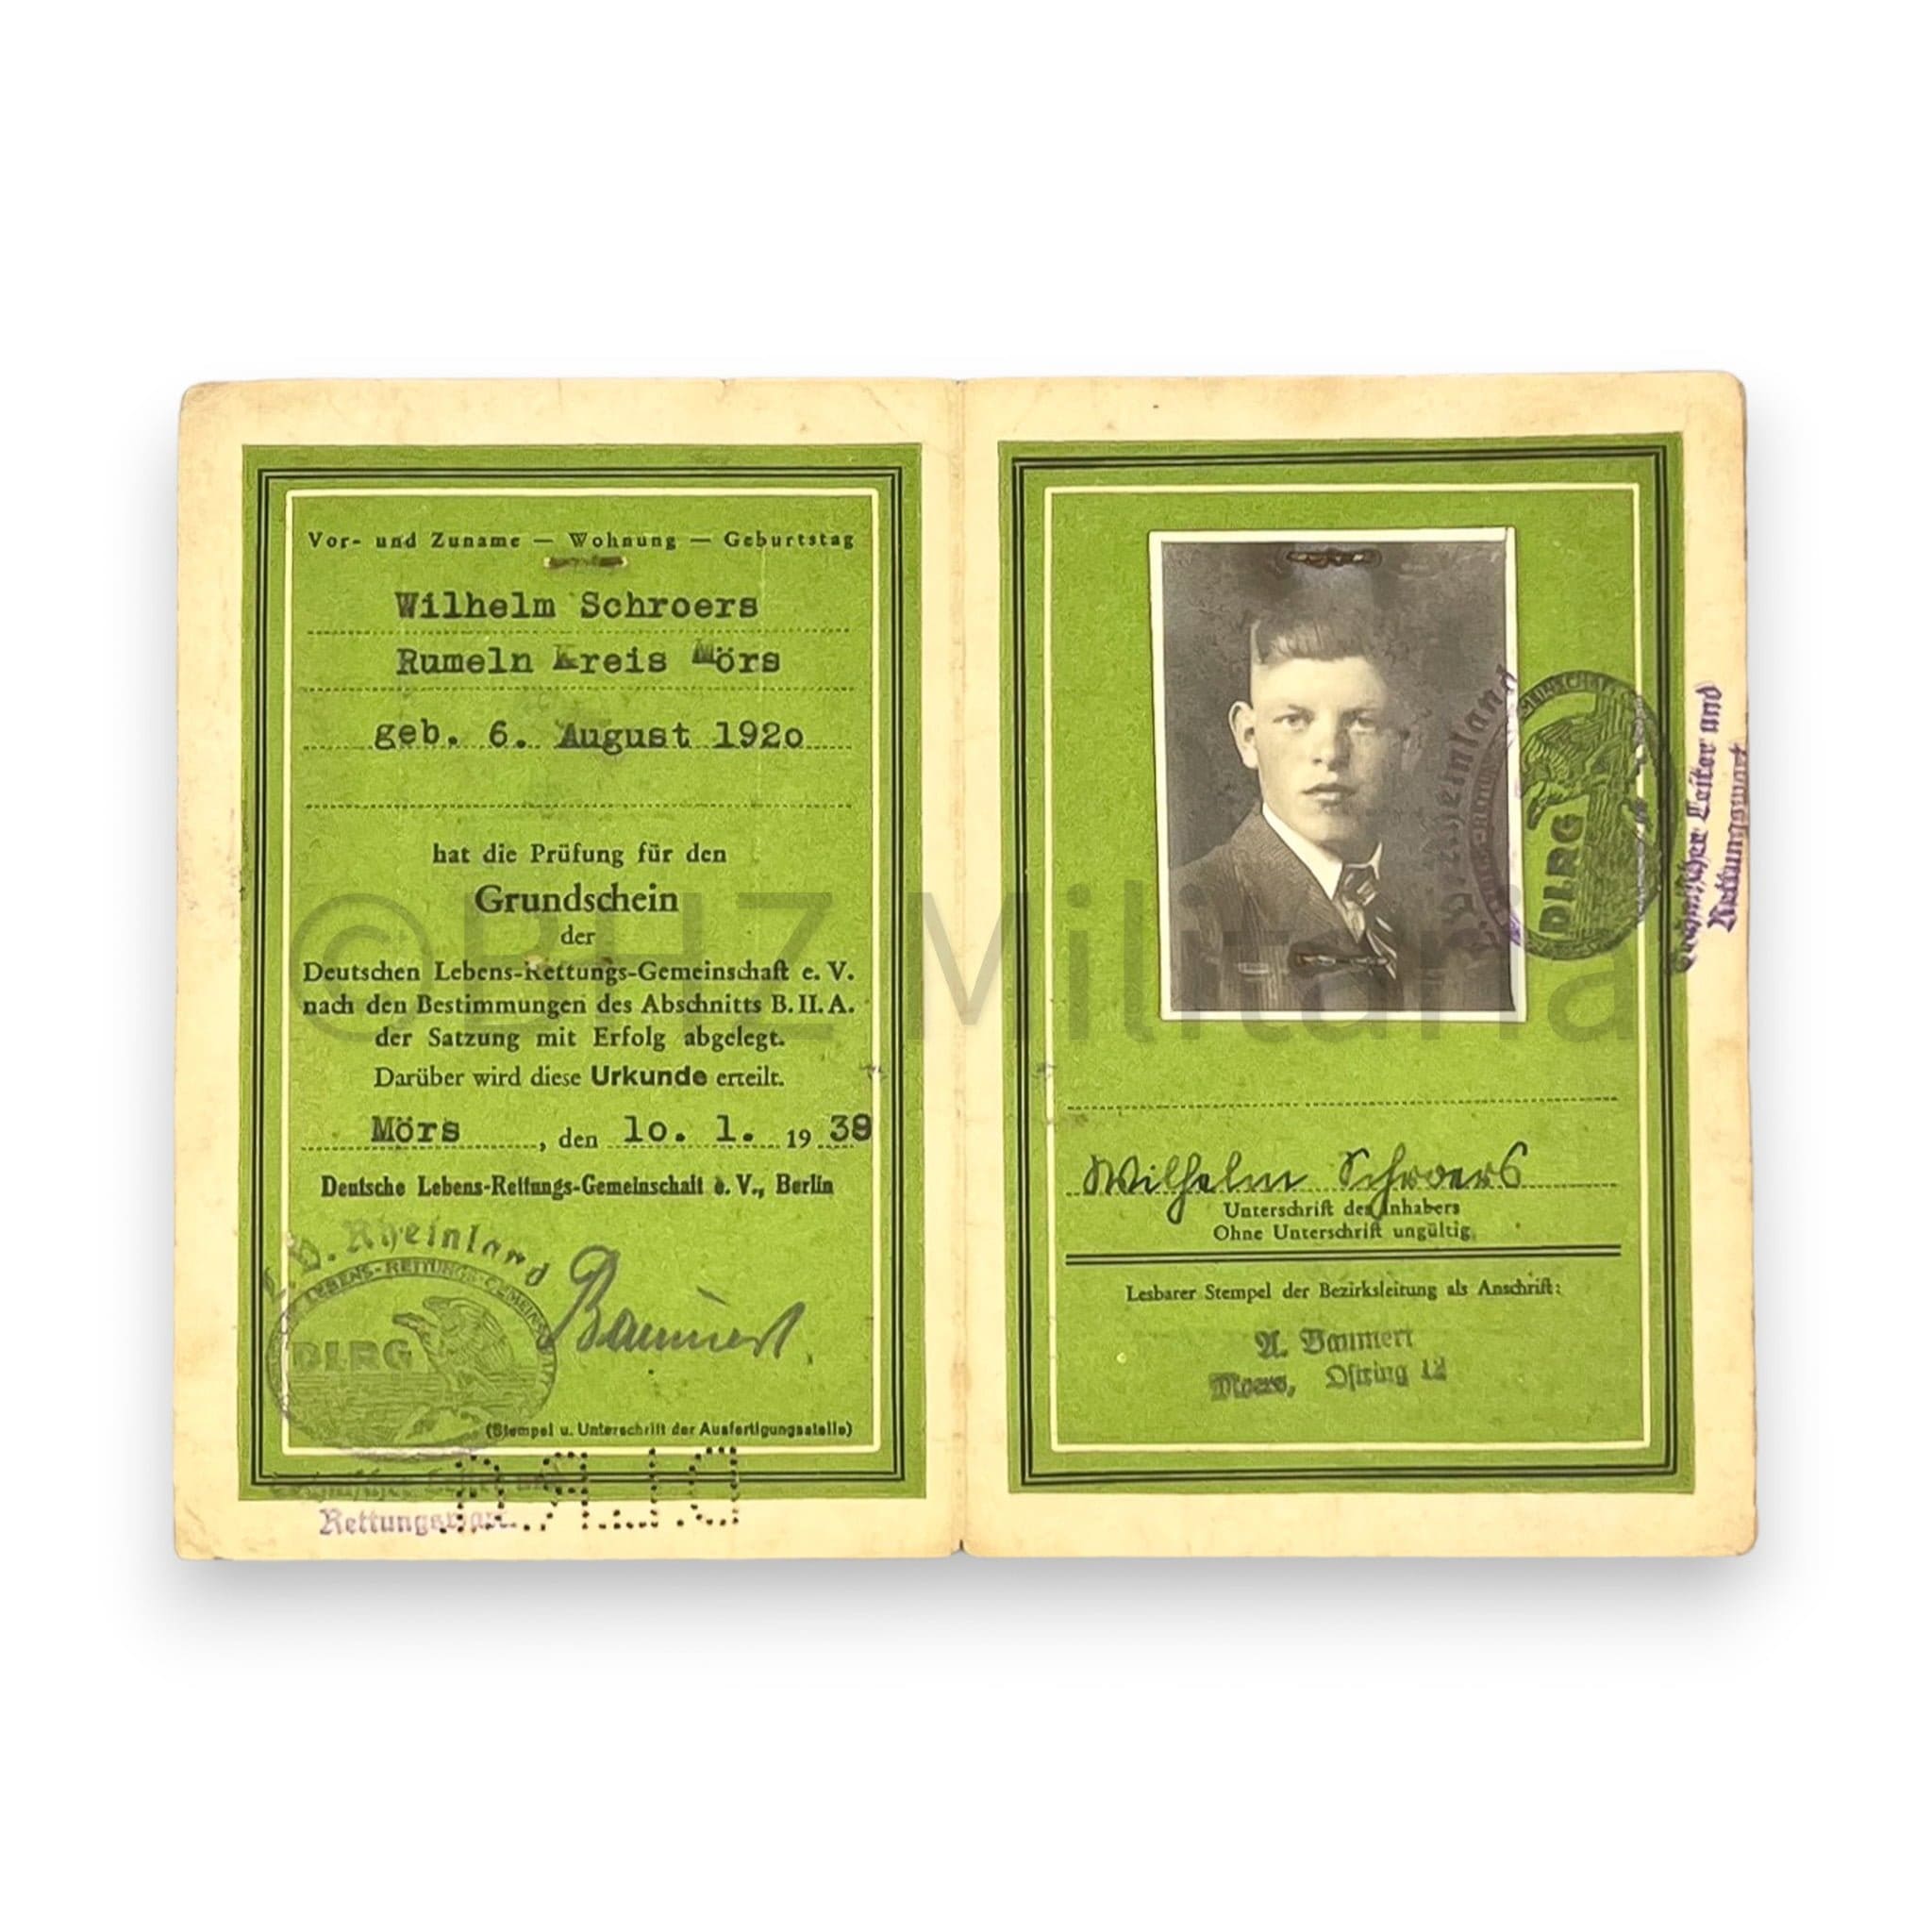 Vor- und Zuname — Wohnung — Geburtstag
Wilhelm Schroers
Rumeln Kreis Mörs
geb. 6. August 192o
hat die Prüfung für den
Grundschein
der
Deutschen Lebens-Rettungs-Gemeinschaft e. V.
nach den Bestimmungen des Abschnitts B. II. A.
der Satzung mit Erfolg abgelegt.
Darüber wird diese Urkunde erteilt.
Mörs, den 1o. 1. 1938
Deutsche Lebens-Rettungs-Gemeinschaft e. V., Berlin
L.V. Rheinland
LEBENS-RETTUNGS-GEMEINSCHAFT
DLRG
Baumert
(Stempel u. Unterschrift der Ausfertigungsstelle)
Rettungswart
D.L.R.G.
Rheinland
DLRG
Technischer Leiter und
Rettungswart
Wilhelm Schroers
Unterschrift des Inhabers
Ohne Unterschrift ungültig
Lesbarer Stempel der Bezirksleitung als Anschrift:
A. Baumert
Moers, Ostring 12
©BHZ Militaria